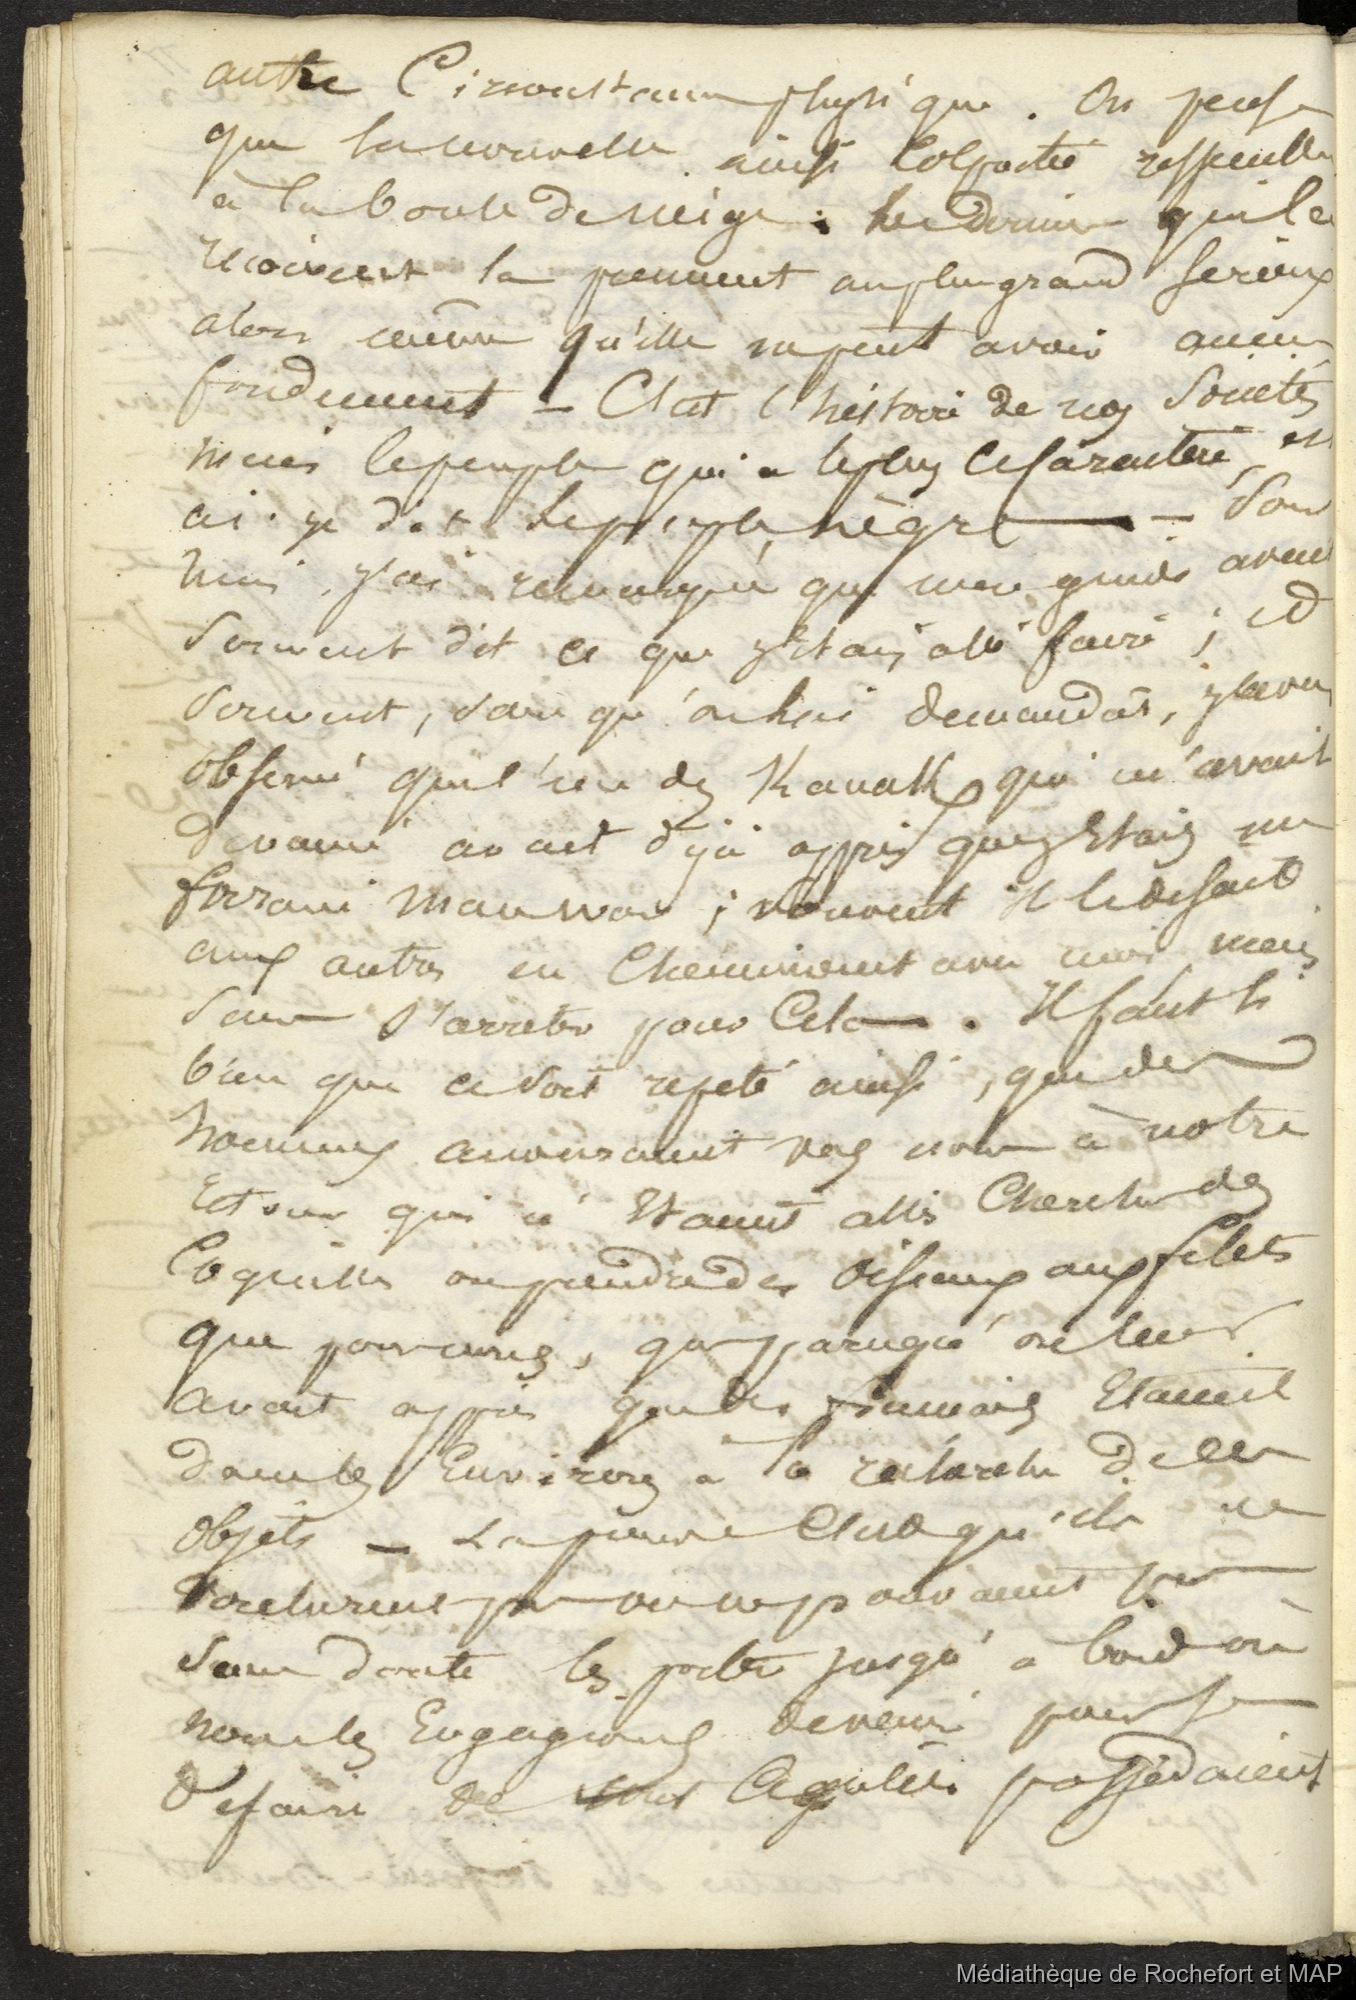 autre Circonstance physique. On pense
que la nouvelle ainsi Colportée ressemble
à la boule de neige : les derniers qui la
recoivent la prennent au plus grand serieux
alors même qu'elle ne peut avoir aucun
fondement – C'est l'histoire de nos Societés
mais le peuple qui a le plus ce Caractere, est
ai-je dit le peuple nègre — Pour
moi, j'ai remarqué que mon guide avait
souvent dit ce que j'étais allé faire ; et
souvent, sans qu'on lui demandât, j'avais
observé que l'un des Kanaks qui m'avait
devancé avait déjà appris que j'étais un
; souvent il le disait
aux autres en Cheminant avec moi mais
sans s'arrêter pour Cela. Il faut
bien que ce soit repeté ainsi, que des
hommes accouraient vers nous à notre
Retour qui n'étaient allés Chercher des
Coquilles ou prendre des Oiseaux aux filets
que parceque, on leur
avait appris que des français Etaient
dans les Environs à la recherche de ces
objets – La preuve C'est qu'ils ne
pas
sans doute les porter jusqu'à bord où
nous les Engagions de venir pour se
Défaire de possedaient
Médiathèque de Rochefort et MAP